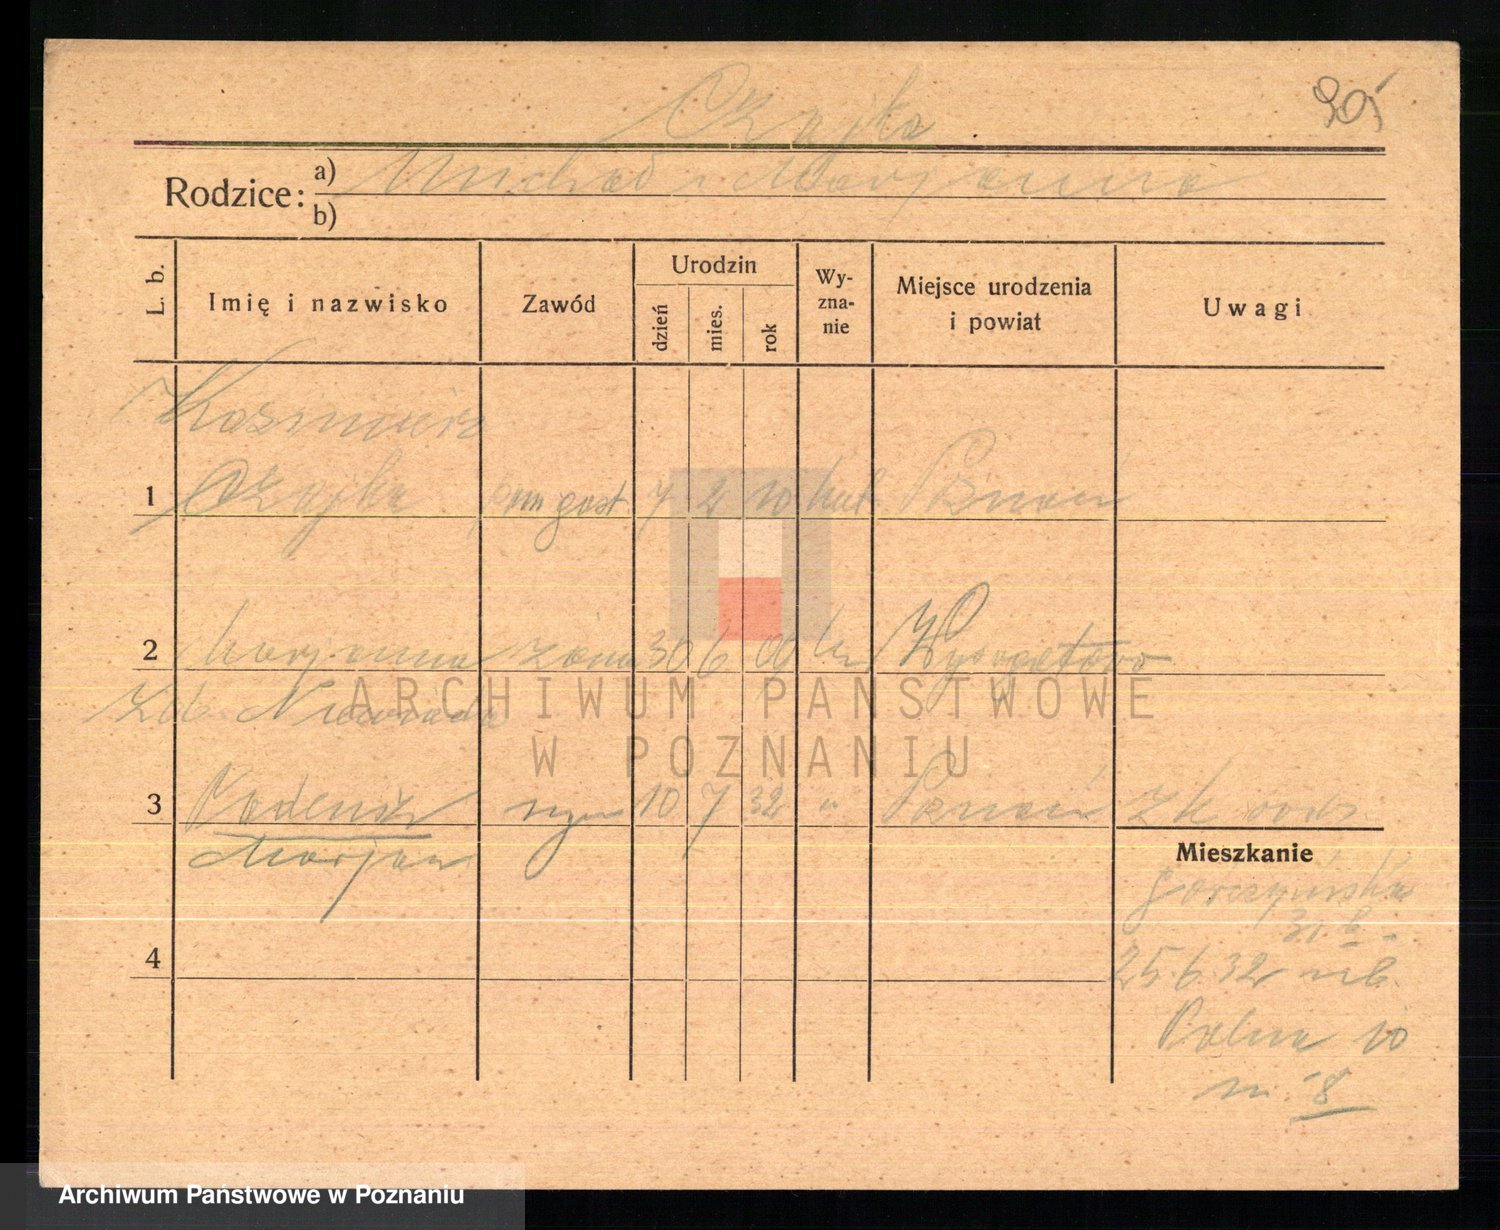 Czajka
905
Rodzice:
a) Michał i Marjanna
b)
L. b.
Imię i nazwisko
Zawód
Urodzin
dzień
mies.
rok
Wy-
zna-
nie
Miejsce urodzenia
i powiat
Uwagi
Kazimierz
1 Czajka pom gost. 7 2 10 kat. Poznań
2 Marjanna żona 30 6 09 Wysogotowo
Nowicka
3 syn 10 7 32 " Poznań
Marjan
Mieszkanie
Gorczyńska
4
25.6.32
Polna 10
m. 8
ARCHIWUM PAŃSTWOWE
W POZNANIU
Archiwum Państwowe w Poznaniu